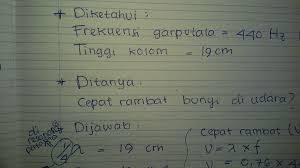 * Diketahui :
Frekuensi garputala = 440 Hz
Tinggi kolom = 19 cm
* Ditanya :
Cepat rambat bunyi di udara?
* Dijawab :
1/4 λ = 19 cm
cepat rambat (
V = λ × f
V = 0,76 ×